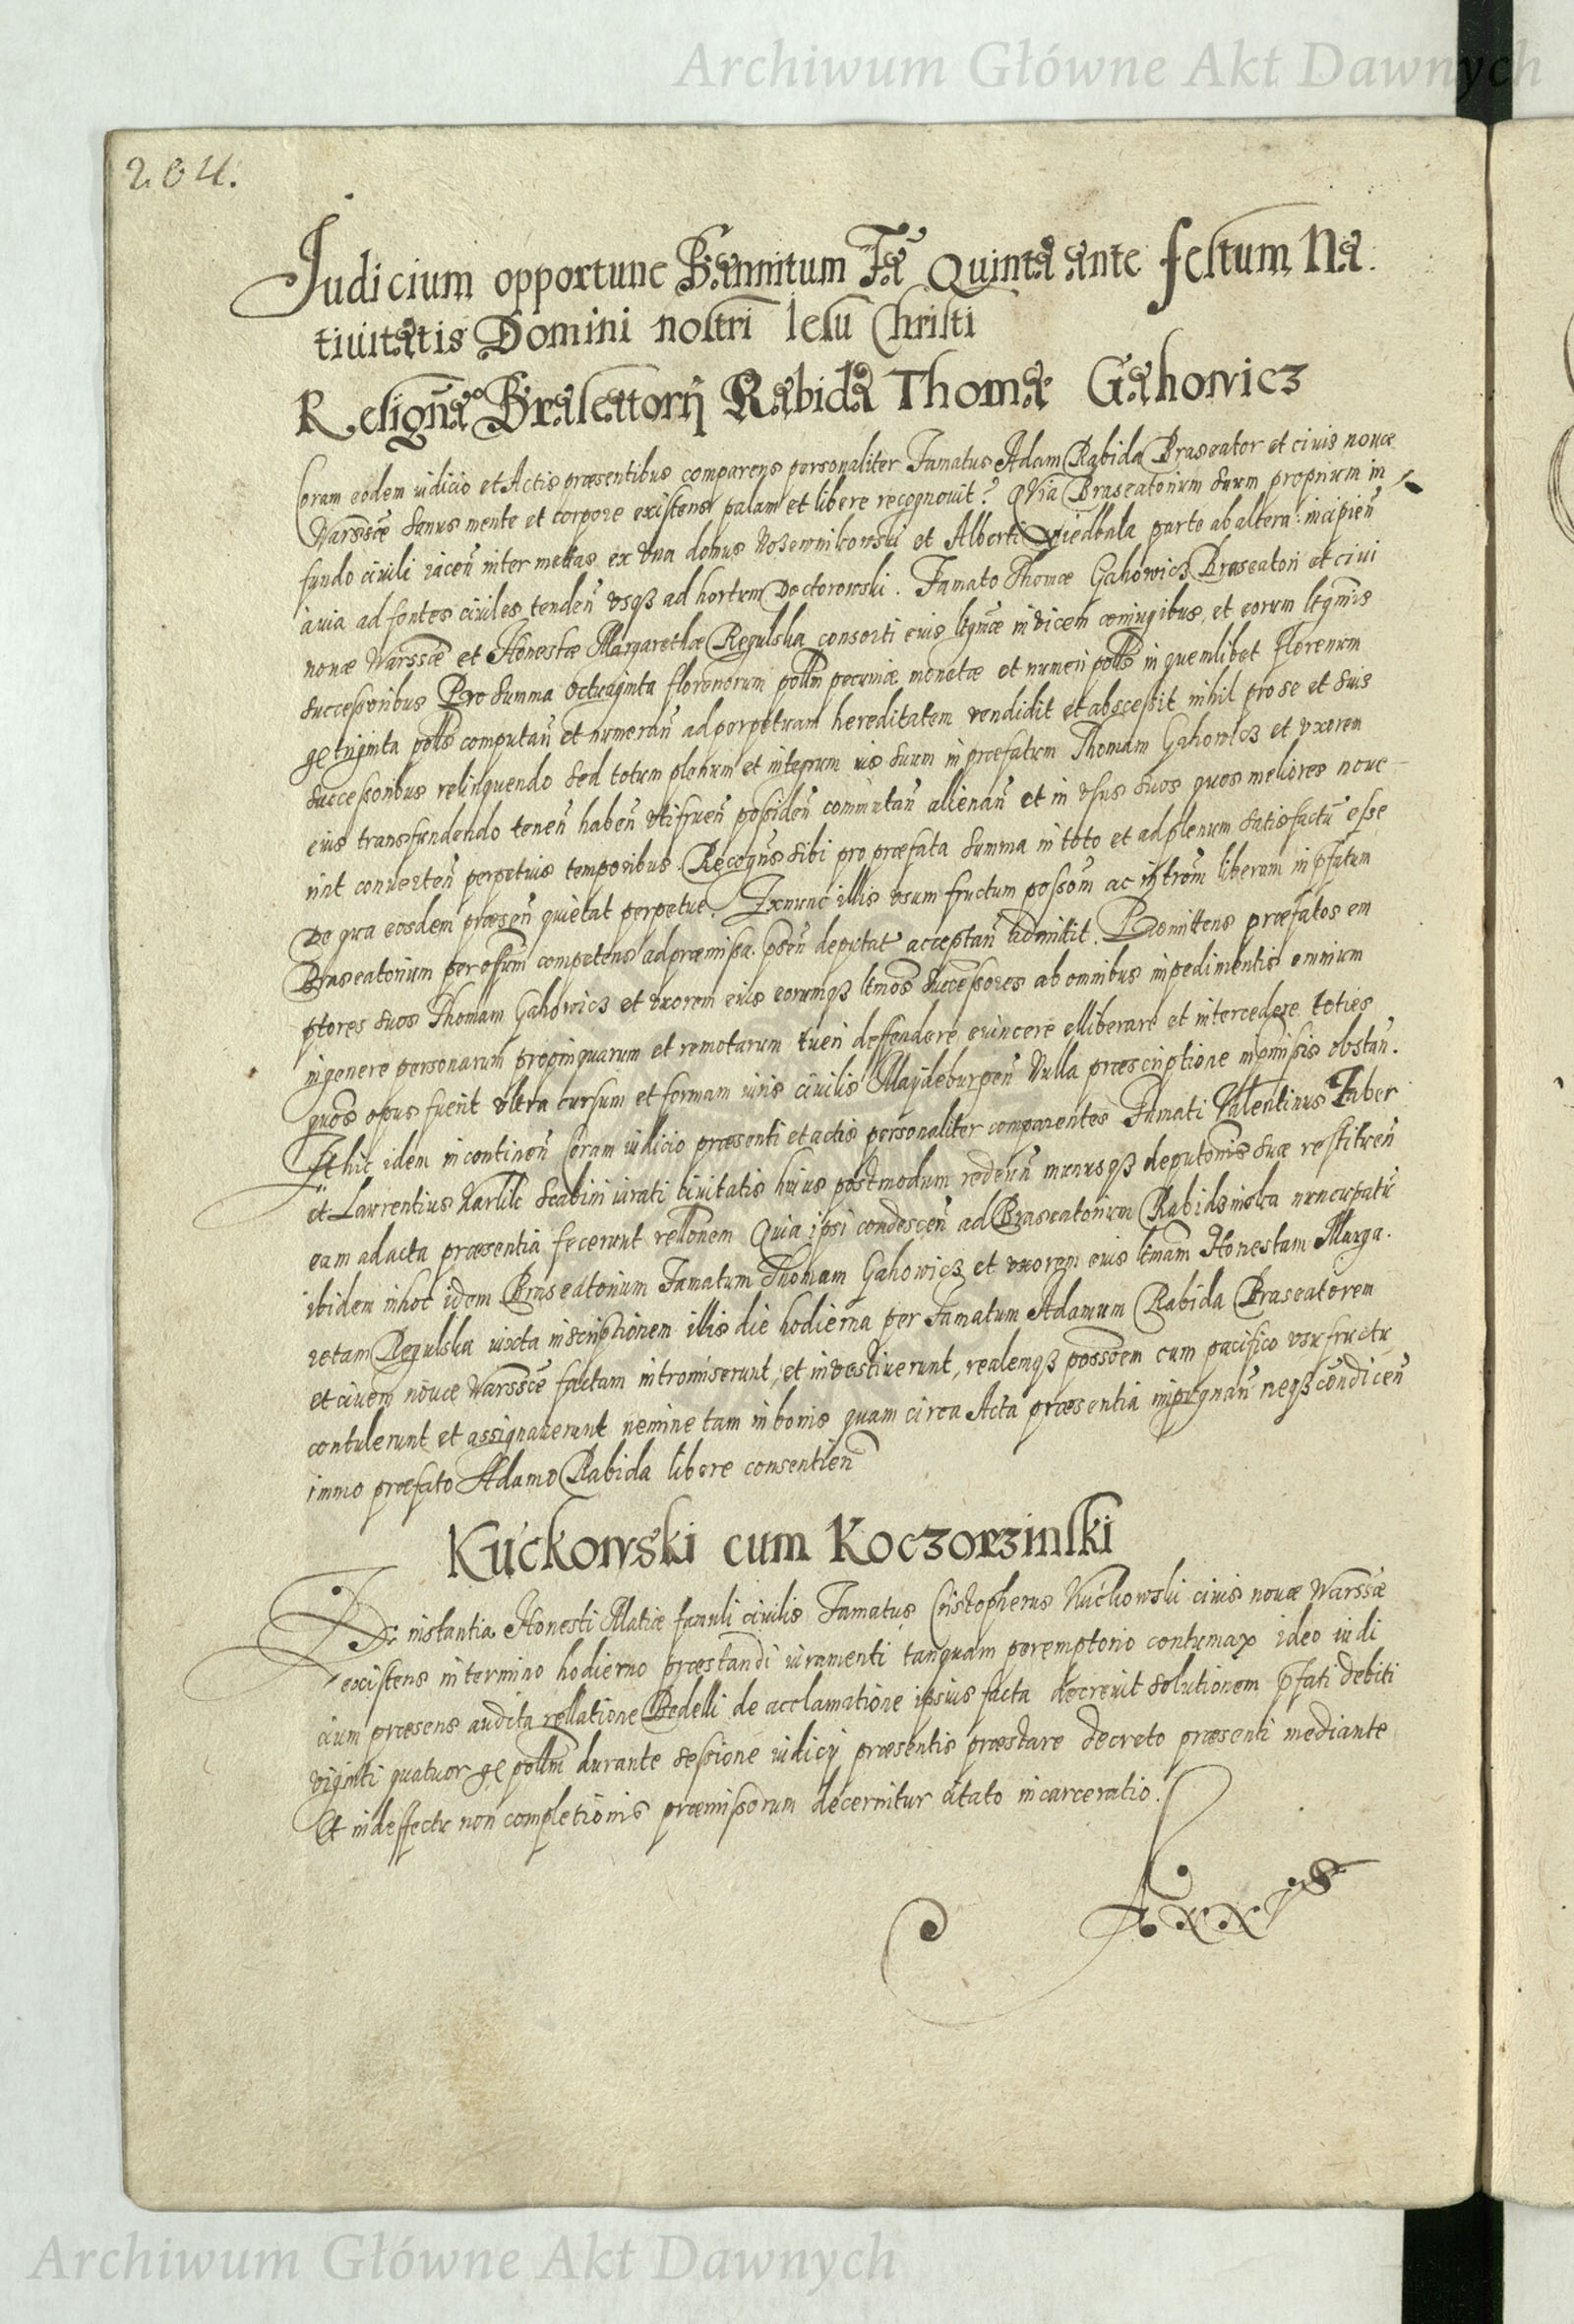 Archiwum Główne Akt Dawnych
204.
Judicium opportune Bannitum Fã Quinta ante festum Na
tiuitatis Domini nostri Iesu Christi
Resignãº Braseatorij Rabida Thomæ Gahowicz
Coram eodem iudicio et Actis præsentibus comparens personaliter Famatus Adam Rabida Braseator et ciuis nouæ
Warssæ sanus mente et corpore existens palam et libere recognouit? Quia Braseatorium suum proprium in
fundo ciuili iaceñ inter mettas ex vna domus et Alberti parte ab altera incipieñ
à via ad fontes ciuiles tendeñ vsqȝ ad hortum Doctorowski. Famato Thomæ Gahowicz Braseatori et ciui
nouæ Warssæ et Honestæ Margarethæ Regulska consorti eius ltgmæ inuicem coniugibus, et eorum ltgmis
successoribus Pro summa octuaginta florenorum pollm pecuniæ monetæ et numeri pollis in quemlibet florenum
ge triginta pollis computañ et numerañ ad perpetuam hereditatem vendidit et abscessit nihil pro se et suis
successoribus relinquendo sed totum plenum et integrum ius suum in præfatum Thomam Gahowicz et vxorem
eius transfundendo teneñ habeñ vtifrueñ possideñ comutañ allienañ et in vsus suos quos meliores noue
rint conuerteñ perpetuis temporibus. Recogñs sibi pro præfata summa in toto et ad plenum satisfactũ esse
De qua eosdem præseñ quietat perpetue. Exnunc illis vsum fructum possom ac intrõm liberam in pfatum
Braseatorium per offum competens ad præmissa pseñ deputat acceptañ admittit. Promittens præfatos em
ptores suos Thomam Gahowicz et vxorem eius eorumqȝ ltmos successores ab omnibus impedimentis omnium
in genere personarum propinquarum et remotarum tueri deffendere euincere elliberare et intercedere toties
quos opus fuerit vltra cursum et formam iuris ciuilis Maydeburgeñ Nulla præscriptione in pmissis obstañ.
Et hic idem in continen̄ Coram iudicio præsenti et actis personaliter comparentes Famati Valentinus Faber
et Laurentius Karlik Scabini iurati ciuitatis huius postmodum redeuñ munusqȝ deputõnis suæ restitueñ
eam ad acta præsentia fecerunt rellonem Quia ipsi condesceñ ad Braseatorium Rabidzinska nuncupatũ
ibidem in hoc idem Braseatorium Famatum Thomam Gahowicz et vxorem eius ltmam Honestam Marga.
retam Regulska iuxta inscriptionem illis die hodierna per Famatum Adamum Rabida Braseatorem
et ciuem nouæ Warssæ factam intromiserunt, et inuestiuerunt, realemqȝ possoem cum pacifico vsufructu
contulerunt et assignauerunt nemine tam in bonis quam circa Acta præsentia impugnañ neqȝ condiceñ
immo præfato Adamo Rabida libere consentieñ
Kuckowski cum Koczorzinski
Ad instantia Honesti Matiæ famuli ciuilis Famatus Cristopherus Kuckowski ciuis nouæ Warssæ
existens in termino hodierno præstandi iuramenti tanquam peremptorio contumax ideo iudi
cium præsens audita rellatione Bedelli de acclamatione ipsius facta decreuit solutionem pfati debiti
viginti quatuor ge pollm durante sessione iudicij præsentis præstare decreto præsenti mediante
Et in deffectu non completionis præmissorum decernitur citato incarceratio.
Archiwum Główne Akt Dawnych